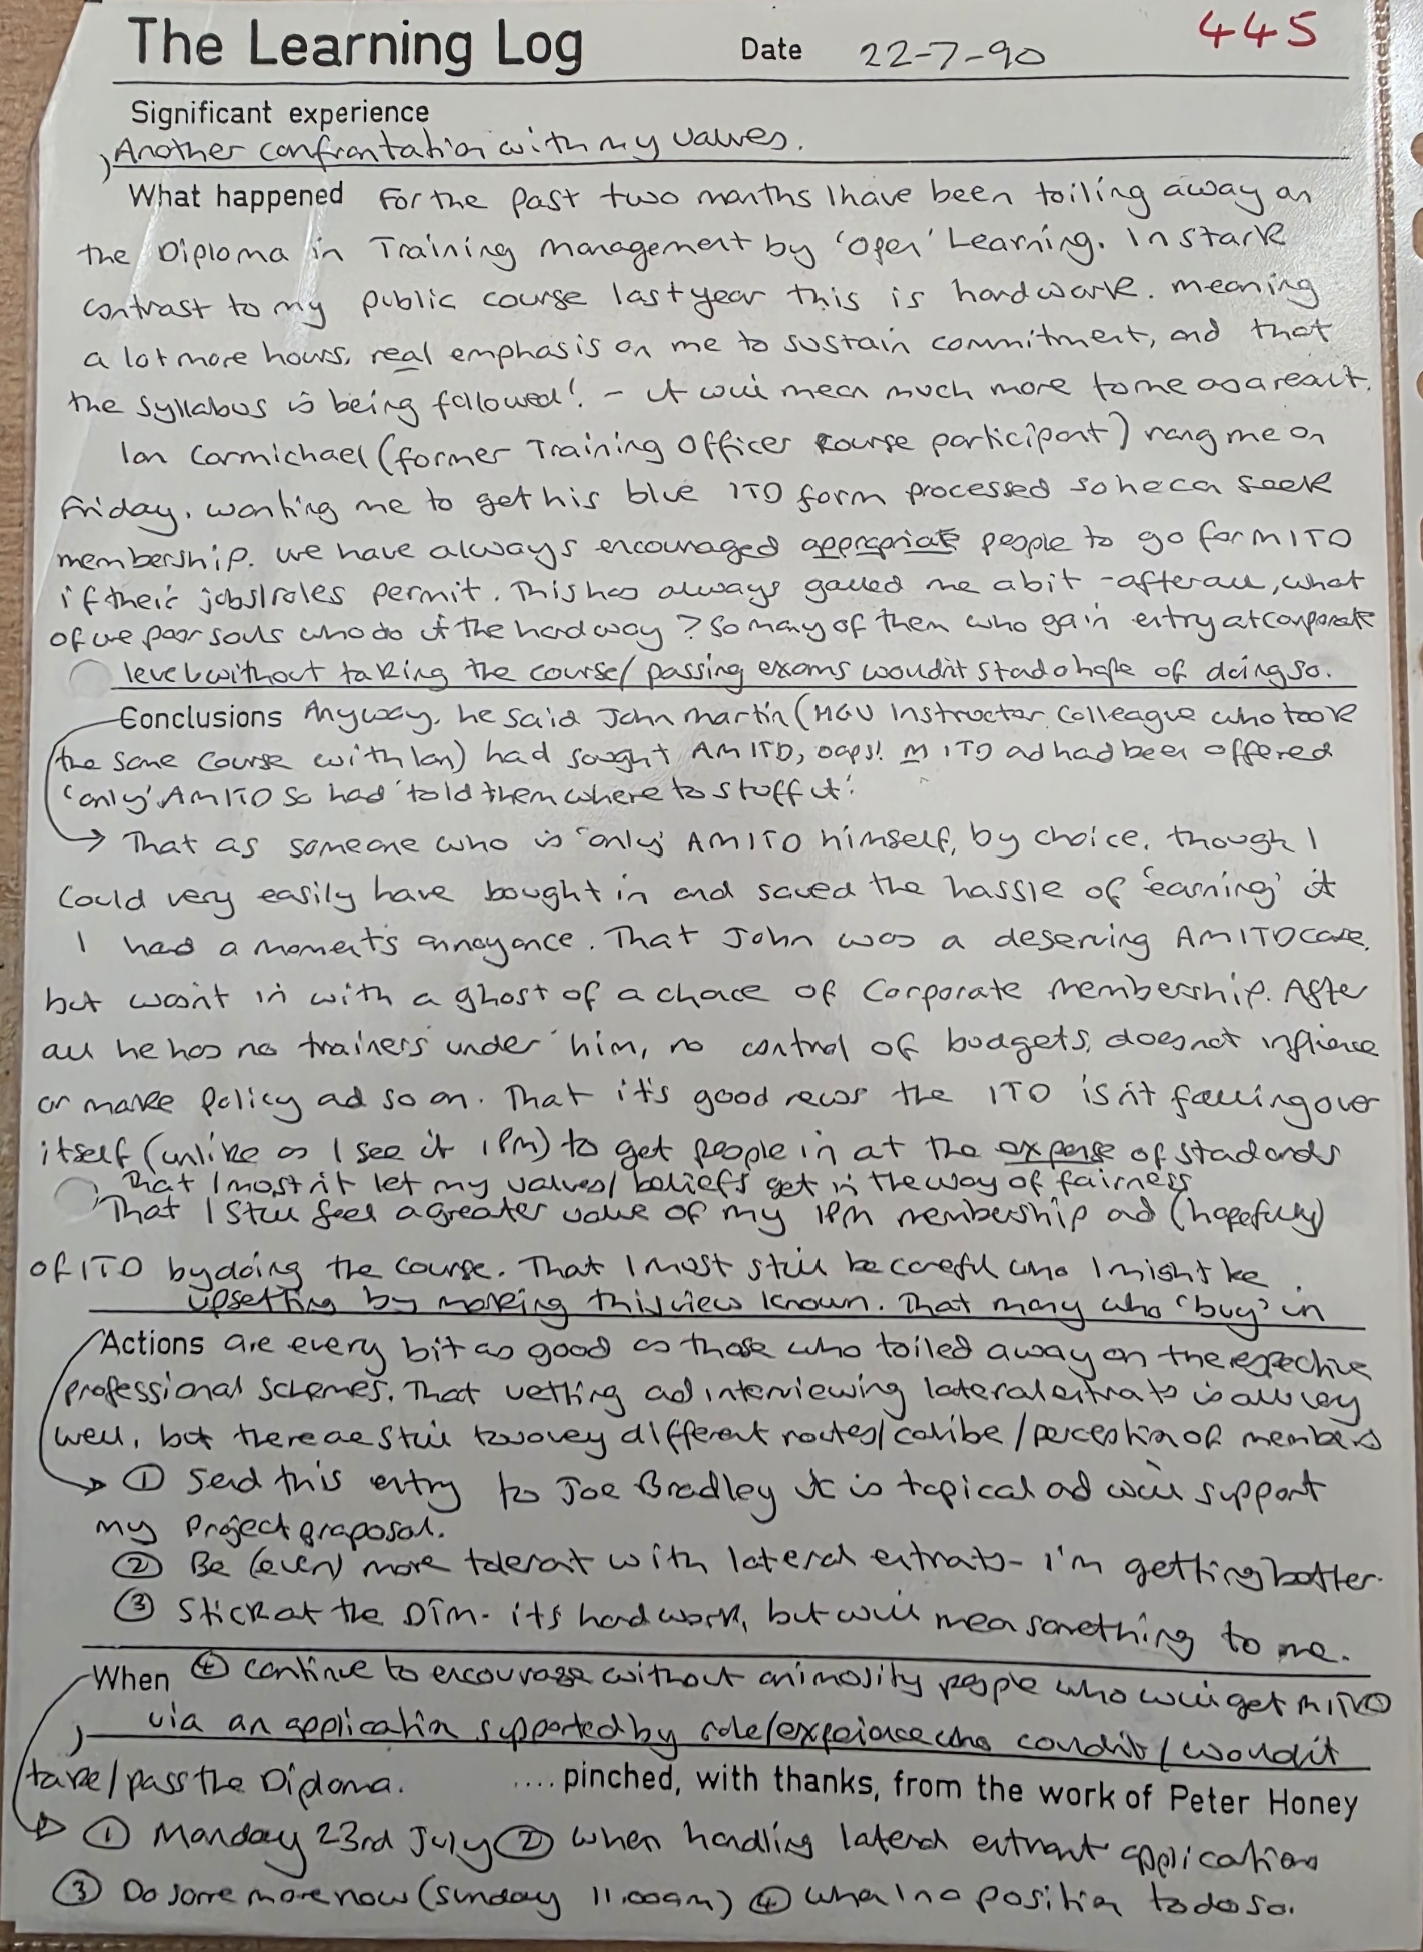 The Learning Log Date 22-7-90 445
Significant experience
Another confrontation with my values.
What happened For the past two months I have been toiling away on
the Diploma in Training Management by 'open' Learning. In stark
contrast to my public course last year this is hard work. meaning
a lot more hours, real emphasis on me to sustain commitment, and that
the syllabus is being followed! - it will mean much more to me as a result.
Ian Carmichael (former Training Officer course participant) rang me on
Friday, wanting me to get his blue ITD form processed so he can seek
membership. We have always encouraged appropriate people to go for MITD
if their jobs/roles permit. This has always galled me a bit - after all, what
of we poor souls who do it the hard way? So many of them who gain entry at corporate
level without taking the course/passing exams wouldn't stand a hope of doing so.
Conclusions Anyway, he said John Martin (MGU Instructor Colleague who took
the same course with Ian) had sought AMITD, oops! MITD and had been offered
'only' AMITD so had 'told them where to stuff it'.
→ That as someone who is 'only' AMITD himself, by choice, though I
could very easily have bought in and saved the hassle of 'earning' it
I had a moment's annoyance. That John was a deserving AMITD case,
but wasn't in with a ghost of a chance of Corporate Membership. After
all he has no trainers under him, no control of budgets, does not influence
or make policy and so on. That it's good news the ITD isn't falling over
itself (unlike as I see it IPM) to get people in at the expense of standards
That I mustn't let my values/beliefs get in the way of fairness
That I still feel a greater value of my IPM membership and (hopefully)
of ITD by doing the course. That I must still be careful who I might be
upsetting by making this view known. That many who 'buy' in
Actions are every bit as good as those who toiled away on the respective
professional schemes. That vetting and interviewing lateral entrants is all very
well, but there are still two very different routes/calibre/perception of members
→ ① Send this entry to Joe Bradley it is topical and will support
my project proposal.
② Be (even) more tolerant with lateral entrants - I'm getting better.
③ Stick at the DTM - it's hard work, but will mean something to me.
When ④ continue to encourage without animosity people who will get MITD
via an application supported by role/experience who couldn't/wouldn't
take/pass the Diploma. ....pinched, with thanks, from the work of Peter Honey
→ ① Monday 23rd July ② When handling lateral entrant applications
③ Do some more now (Sunday 11.00am) ④ when in a position to do so.